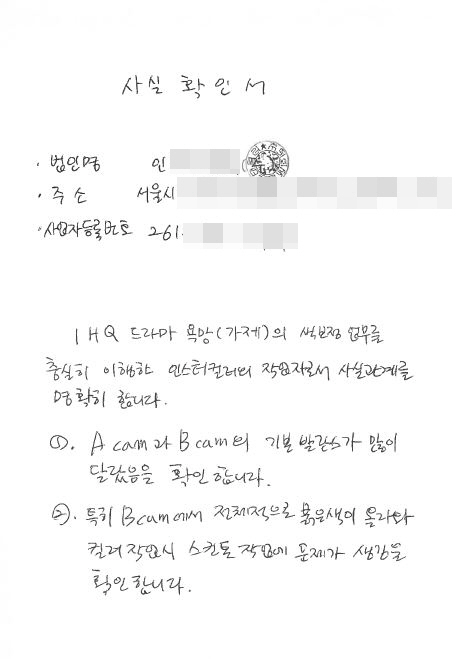 사실 확인서
· 법인명 인
· 주 소 서울시
· 사업자등록번호 261.
IHQ 드라마 욕망(가제)의 색보정 업무를
충실히 이행한 인스터컬러의 작업자로서 사실관계를
명확히 합니다.
①. A cam과 B cam의 기본 발란스가 많이
달랐음을 확인합니다.
②. 특히 B cam에서 전체적으로 붉은색이 올라와
컬러 작업시 스킨톤 작업에 문제가 생김을
확인합니다.